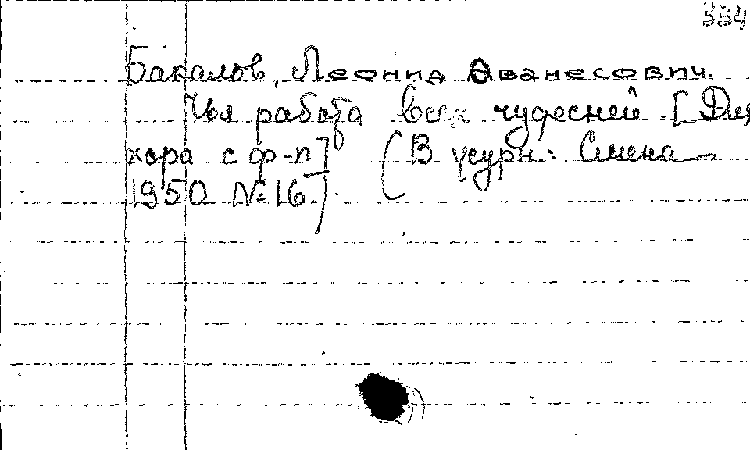 334
Бакалов, Леонид Ованесович.
Чья работа всех чудесней [Для
хора с ф-п]
(В журн. Смена
1950 № 16)